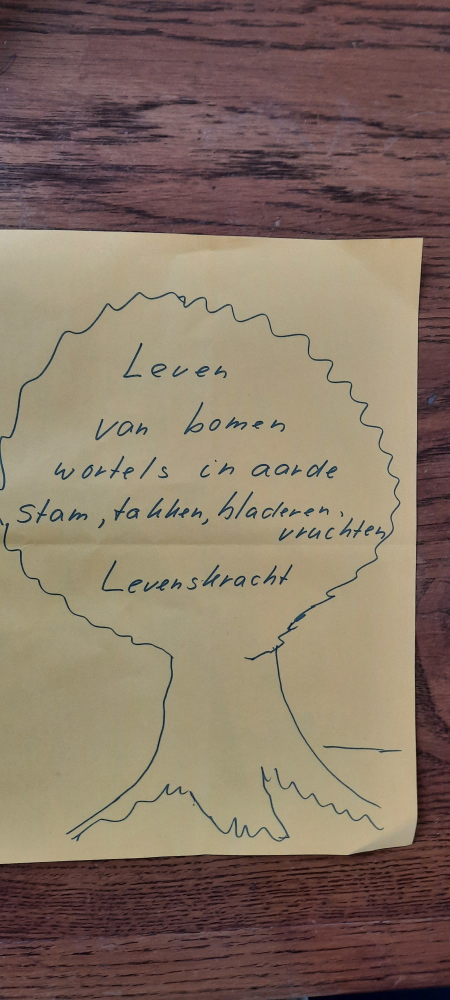 Leven
van bomen
wortels in aarde
stam, takken, bladeren,
vruchten
Levenskracht